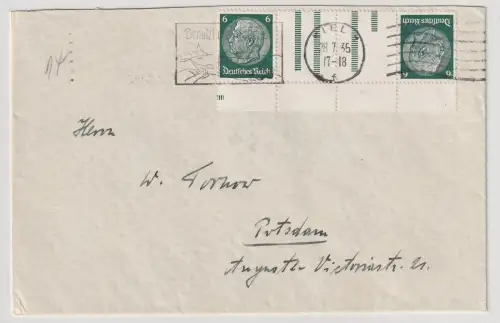 6
6
Deutsches Reich
Benutzt
KIEL
18.7.35
17-18
f
6
6
Deutsches Reich
Herrn
W. Tornow
Potsdam
Auguste Victoriastr. 21.